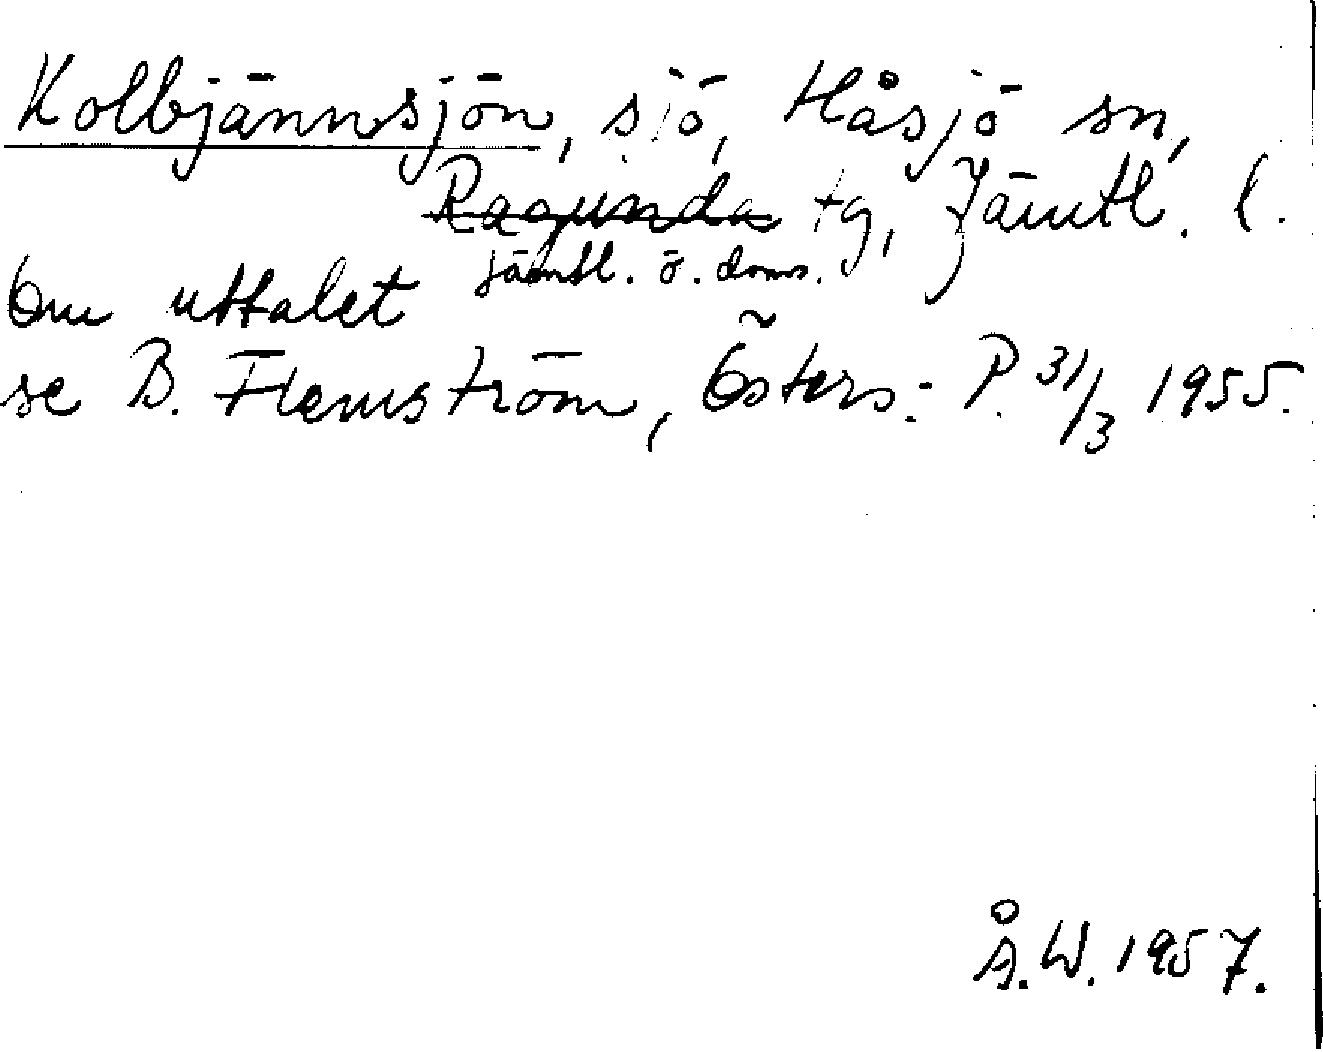 Kolbjännsjön, sjö, Håsjö sn,
Ragunda tg, Jämtl. l.
Jämtl. ö. doms.
Om uttalet
se B. Flemström, Östers.-P. 31/3 1955.
Å.W. 1957.